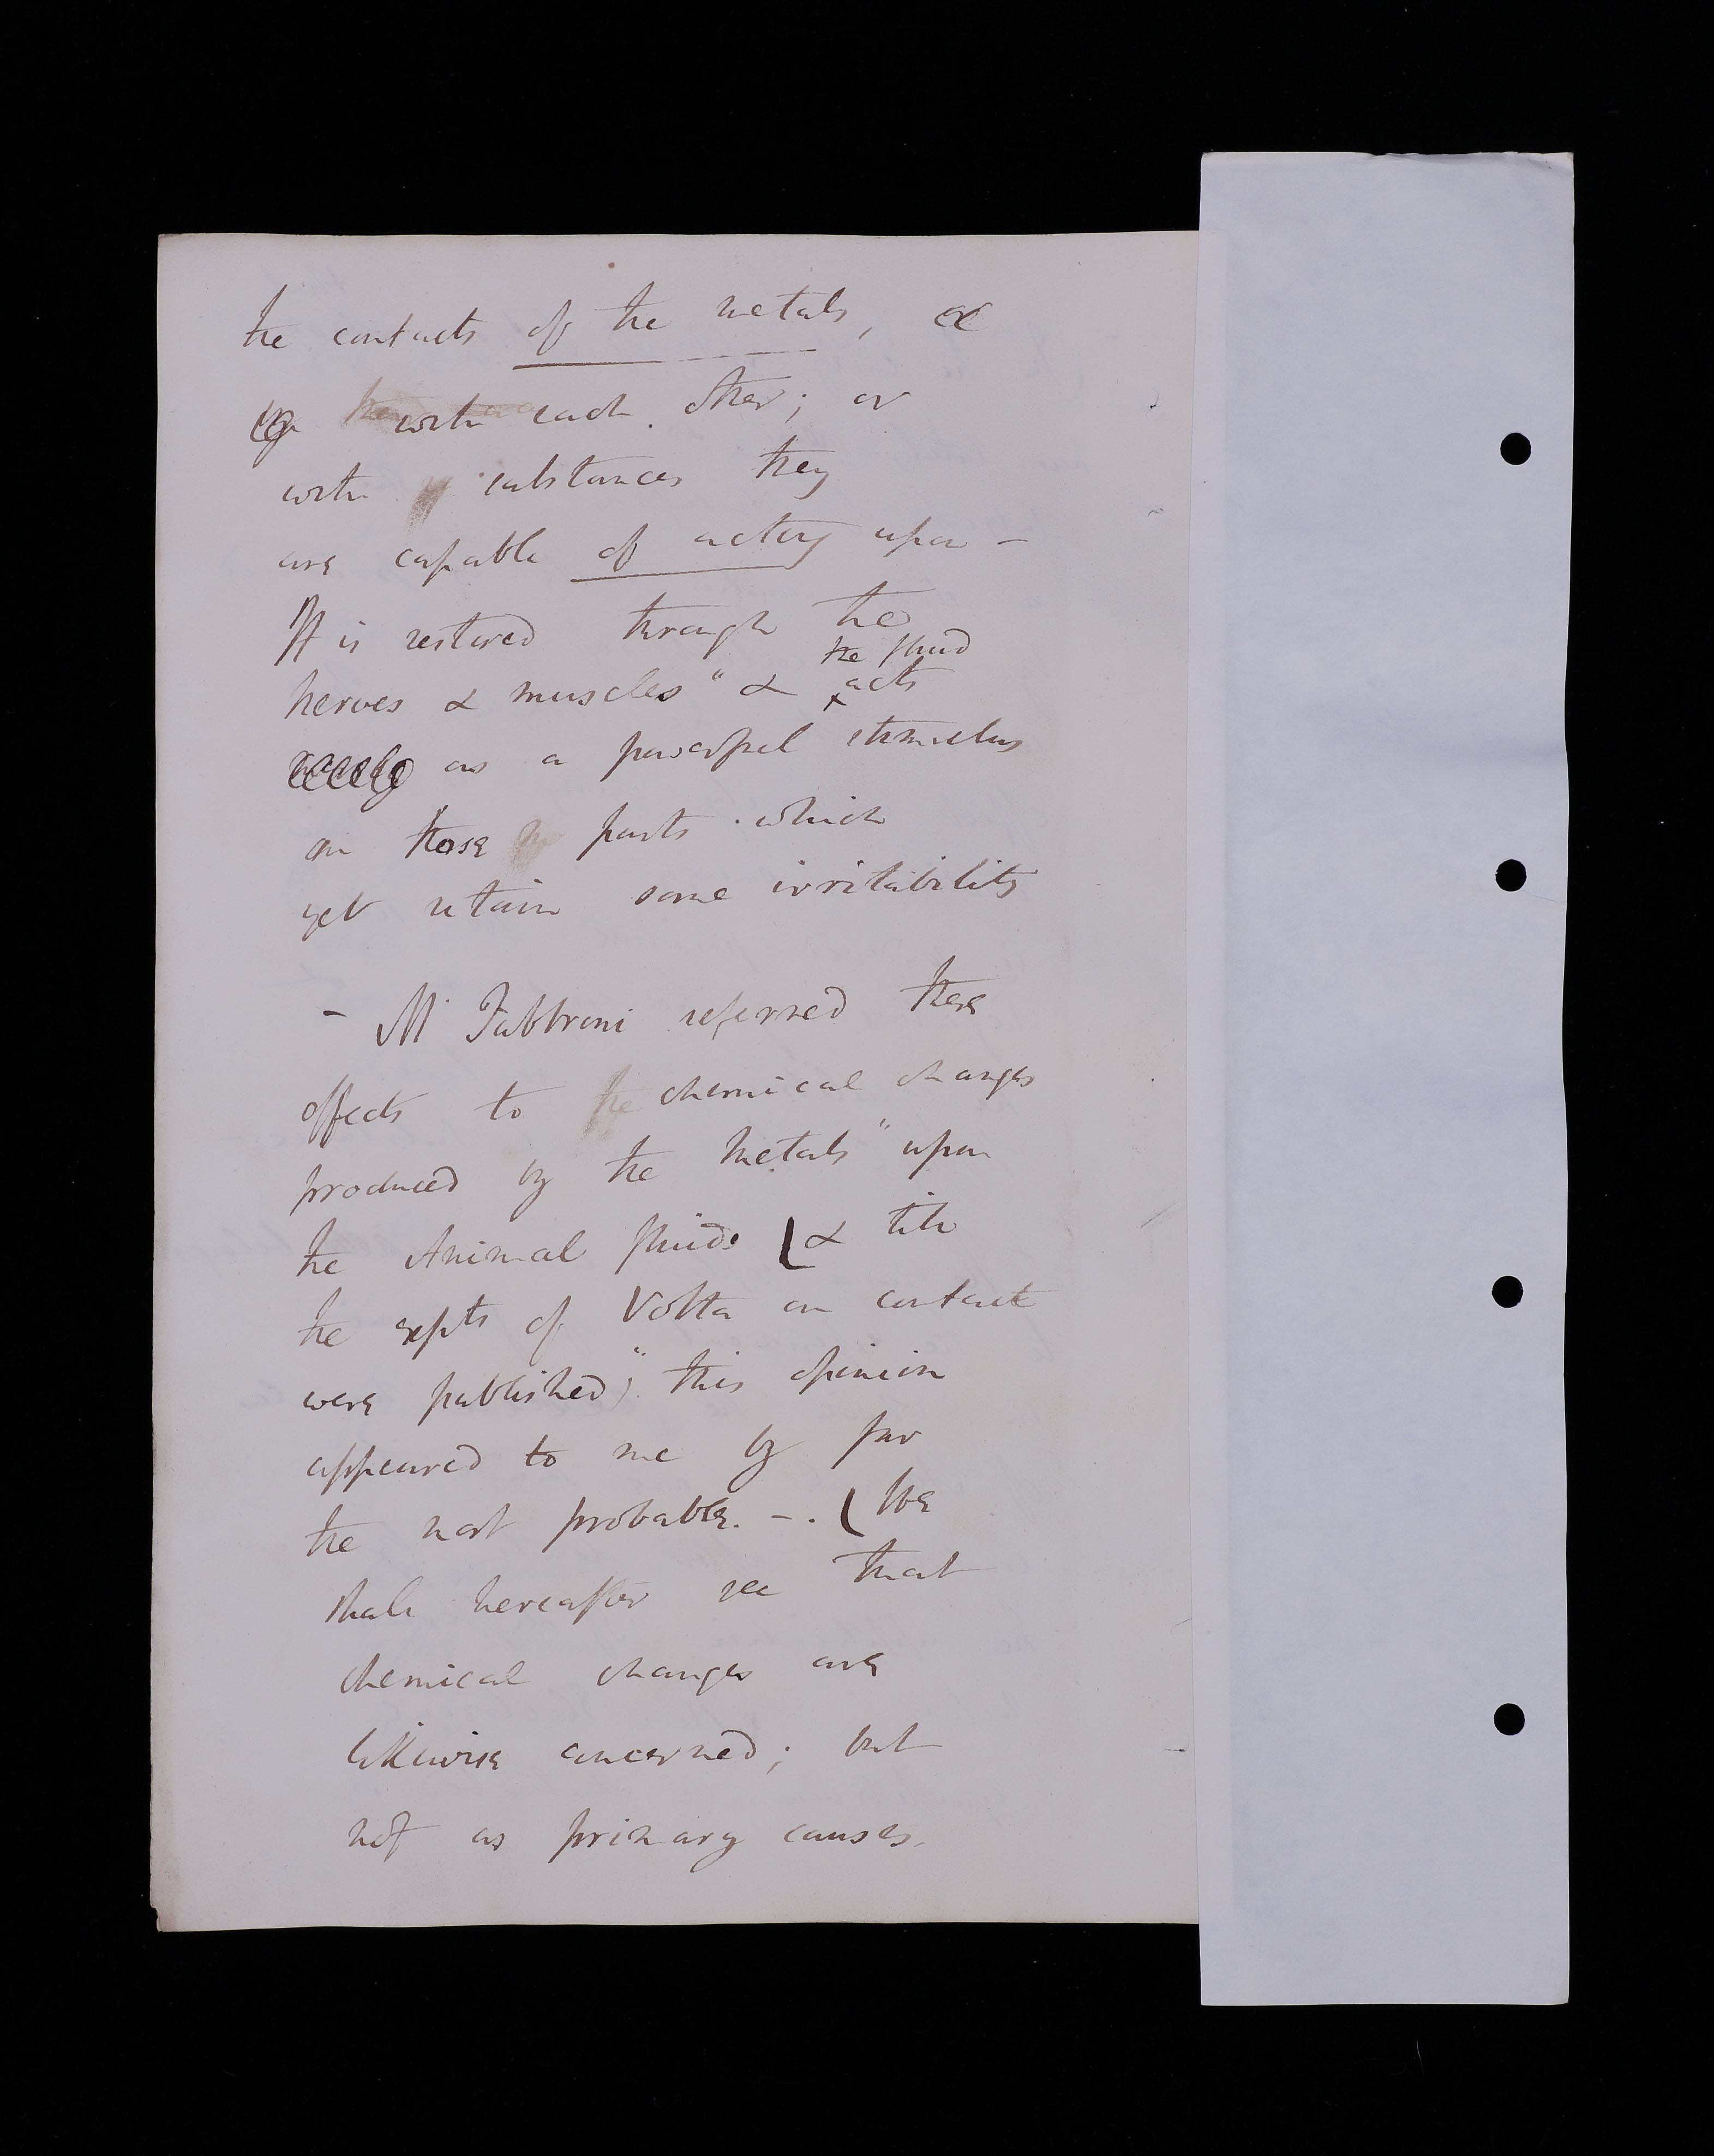 the contacts of the metals,
with each other; or
with substances they
are capable of acting upon –
It is restored through the
the fluid
nerves & muscles" & acts
as a powerful stimulus
on those parts which
yet retain some irritability
– M Fabbroni referred these
effects to the chemical changes
produced by the metals" upon
the Animal fluids ( & till
the expts of Volta on contact
were published)" this opinion
appeared to me by far
the most probable. –. ( We
shall hereafter see that
chemical changes are
likewise concerned; but
not as primary causes.